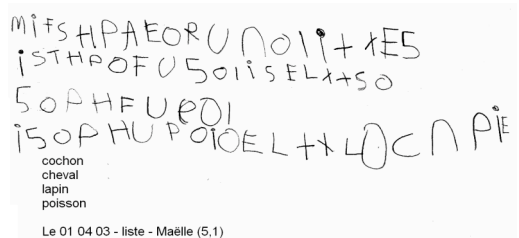 MiFSHPAEORUNOlit+xE5
iSTHPOFU5OIiSELX+SO
5OPHFUPOI
i5OPHUPOiOELt+XLOCNPiE
cochon
cheval
lapin
poisson
Le 01 04 03 - liste - Maëlle (5,1)